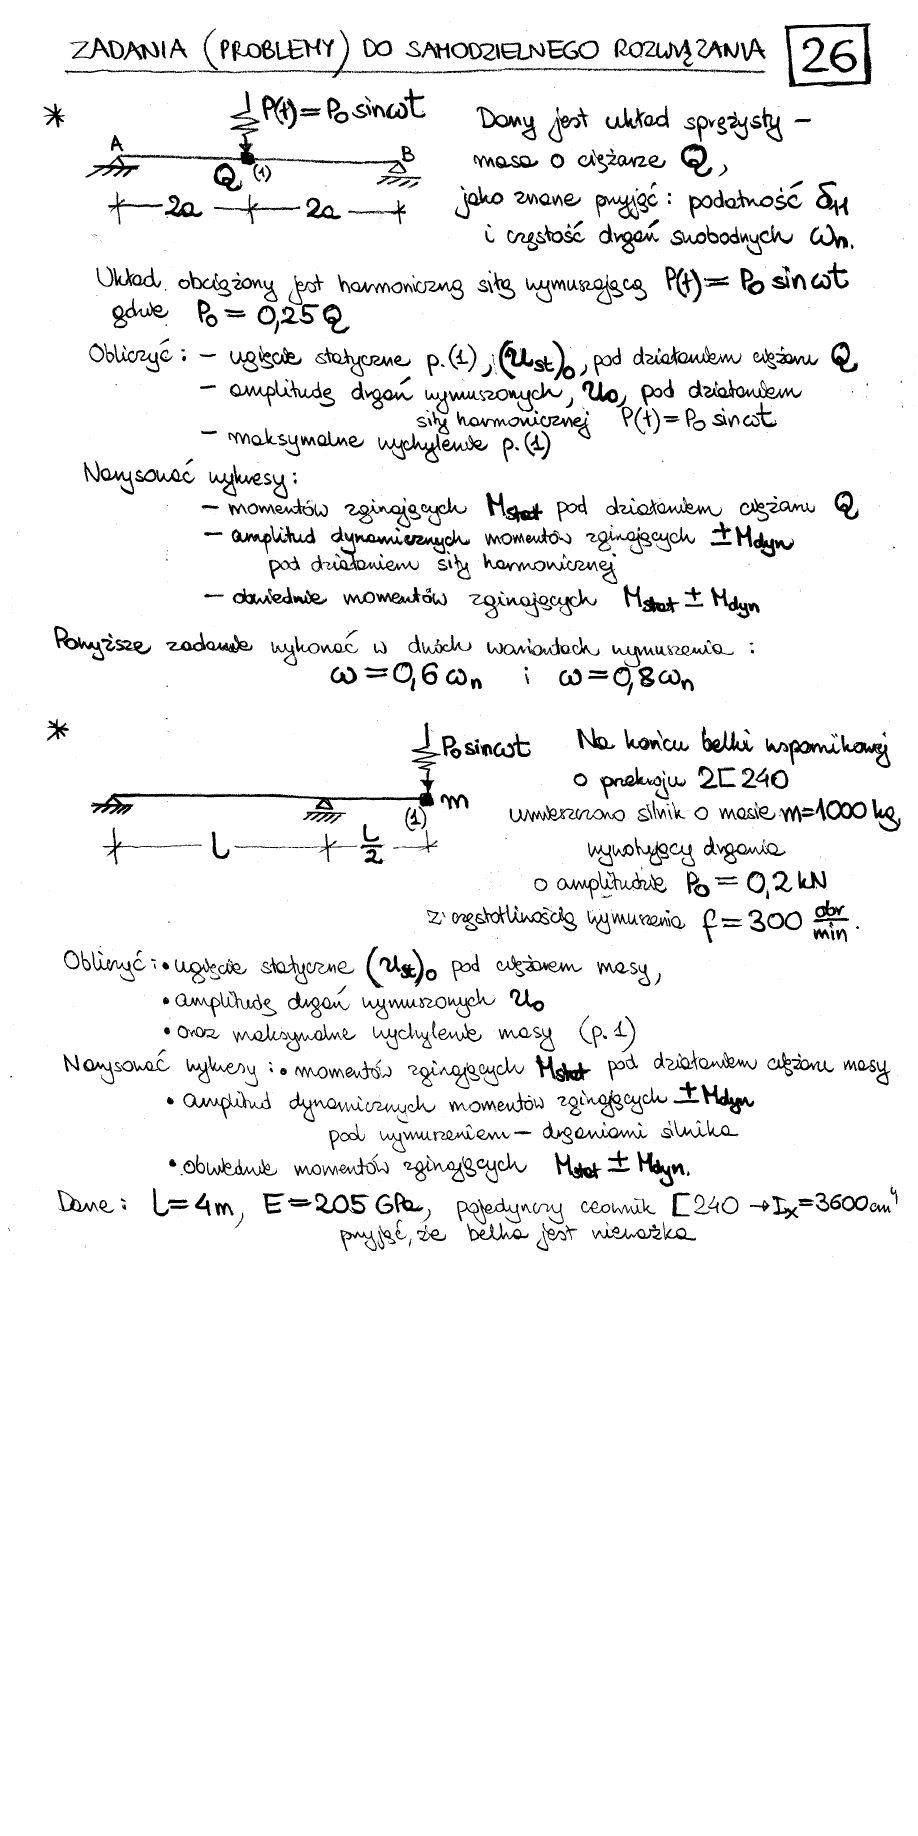 ZADANIA (PROBLEMY) DO SAMODZIELNEGO ROZWIĄZANIA 26
* P(t)=P₀ sinωt
A Q (1) B
2a 2a
Dany jest układ sprężysty –
masa o ciężarze Q,
jako znane przyjąć: podatność δ₁₁
i częstość drgań swobodnych ωn.
Układ obciążony jest harmoniczną siłą wymuszającą P(t)=P₀ sinωt
gdzie P₀=0,25Q
Obliczyć: – ugięcie statyczne p.(1), (ust)₀, pod działaniem ciężaru Q
– amplitudę drgań wymuszonych, u₀, pod działaniem
siły harmonicznej P(t)=P₀ sinωt
– maksymalne wychylenie p.(1)
Narysować wykresy:
– momentów zginających Mstat pod działaniem ciężaru Q
– amplitud dynamicznych momentów zginających ±Mdyn
pod działaniem siły harmonicznej
– obwiednie momentów zginających Mstat ± Mdyn
Powyższe zadanie wykonać w dwóch wariantach wymuszenia:
ω=0,6ωn i ω=0,8ωn
* P₀ sinωt
m
(1)
L L/2
Na końcu belki wspornikowej
o przekroju 2[240
umieszczono silnik o masie m=1000 kg,
wywołujący drgania
o amplitudzie P₀=0,2kN
z częstotliwością wymuszenia f=300 obr/min.
Obliczyć: • ugięcie statyczne (ust)₀ pod ciężarem masy,
• amplitudę drgań wymuszonych u₀
• oraz maksymalne wychylenie masy (p.1)
Narysować wykresy: • momentów zginających Mstat pod działaniem ciężaru masy
• amplitud dynamicznych momentów zginających ±Mdyn
pod wymuszeniem – drganiami silnika
• obwiednie momentów zginających Mstat ± Mdyn.
Dane: L=4m, E=205 GPa, pojedynczy ceownik [240 → Ix=3600cm⁴
przyjąć, że belka jest nieważka